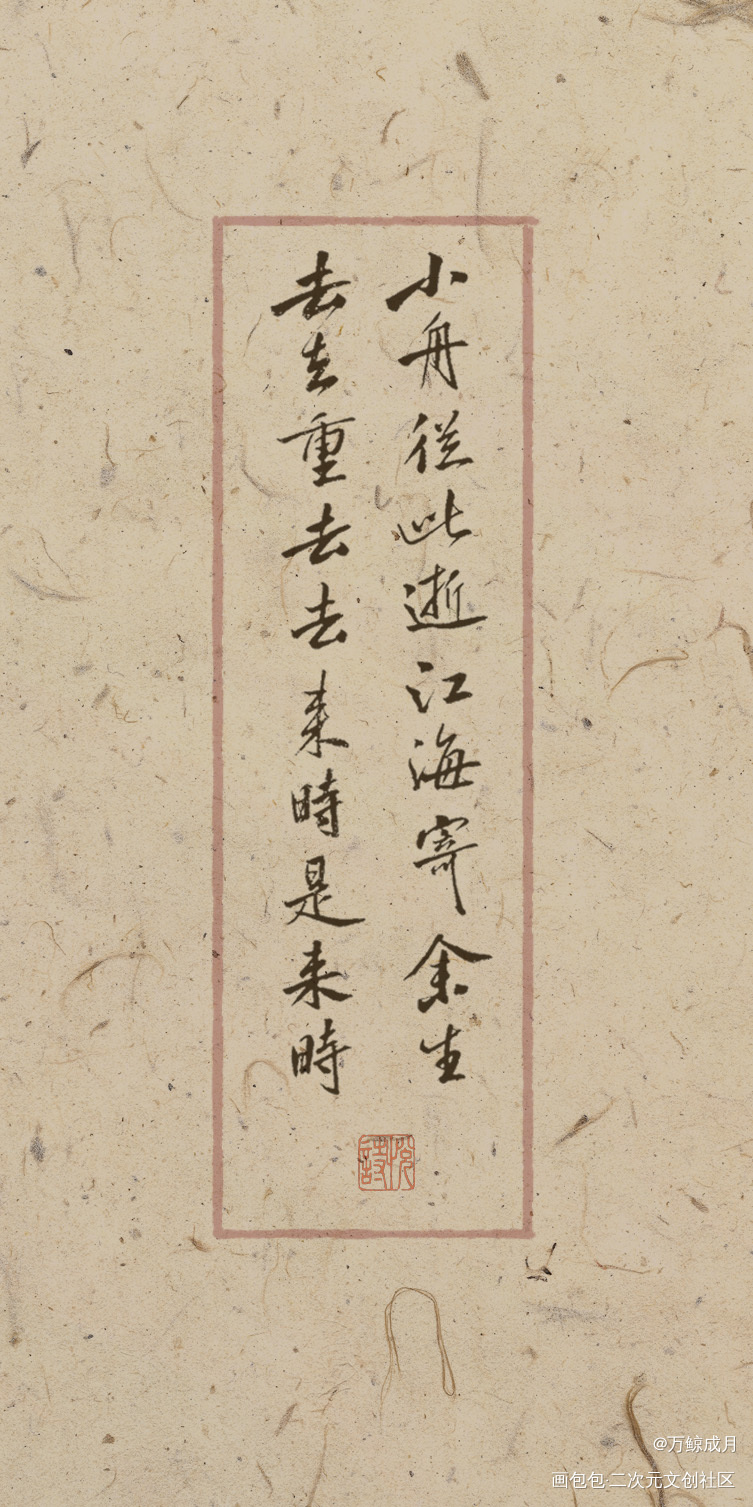 小舟從此逝江海寄余生
去去重去去来時是来時
悦詩
@万鲸成月
画包包·二次元文创社区